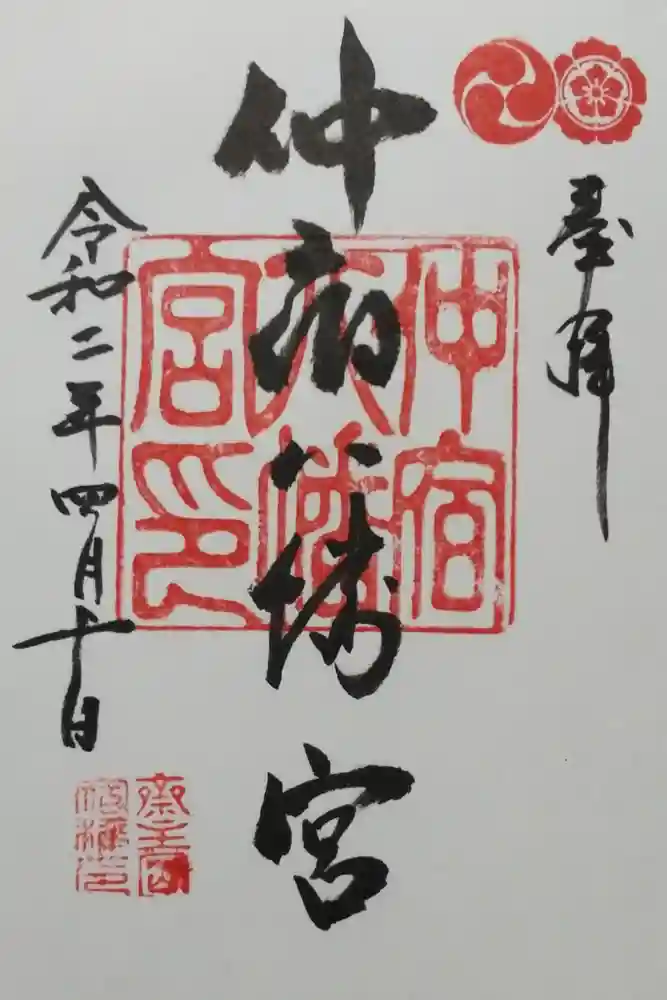 奉拝
仲宿八幡宮
仲宿
八幡
宮印
令和二年四月十日